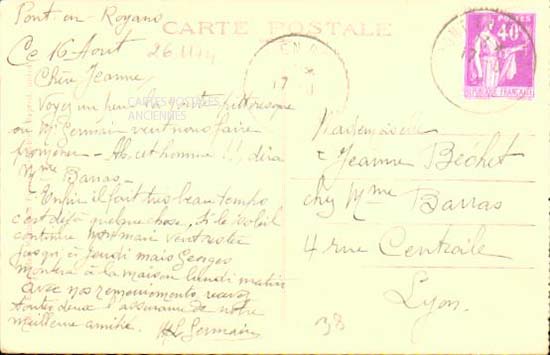 Pont-en-Royans
CARTE POSTALE
Ce 16 Aout
26.1144
Chère Jeanne,
Voyez un peu le site pittoresque
ou Mr Germain veut nous faire
promener - Ah cet homme !!! dira
Mme Barras -
Enfin il fait tres beau temps
c'est déjà quelque chose, si le soleil
continue mon mari veut rester
jusqu'à jeudi mais Georges
montera à la maison lundi matin
avec nos remerciements recevez
toutes deux l'assurance de notre
meilleure amitié.
Germain
CARTES POSTALES
ANCIENNES
POSTES
40c
REPUBLIQUE FRANÇAISE
17
Mademoiselle
Jeanne Bechet
chez Mme Barras
4 rue Centrale
Lyon.
38